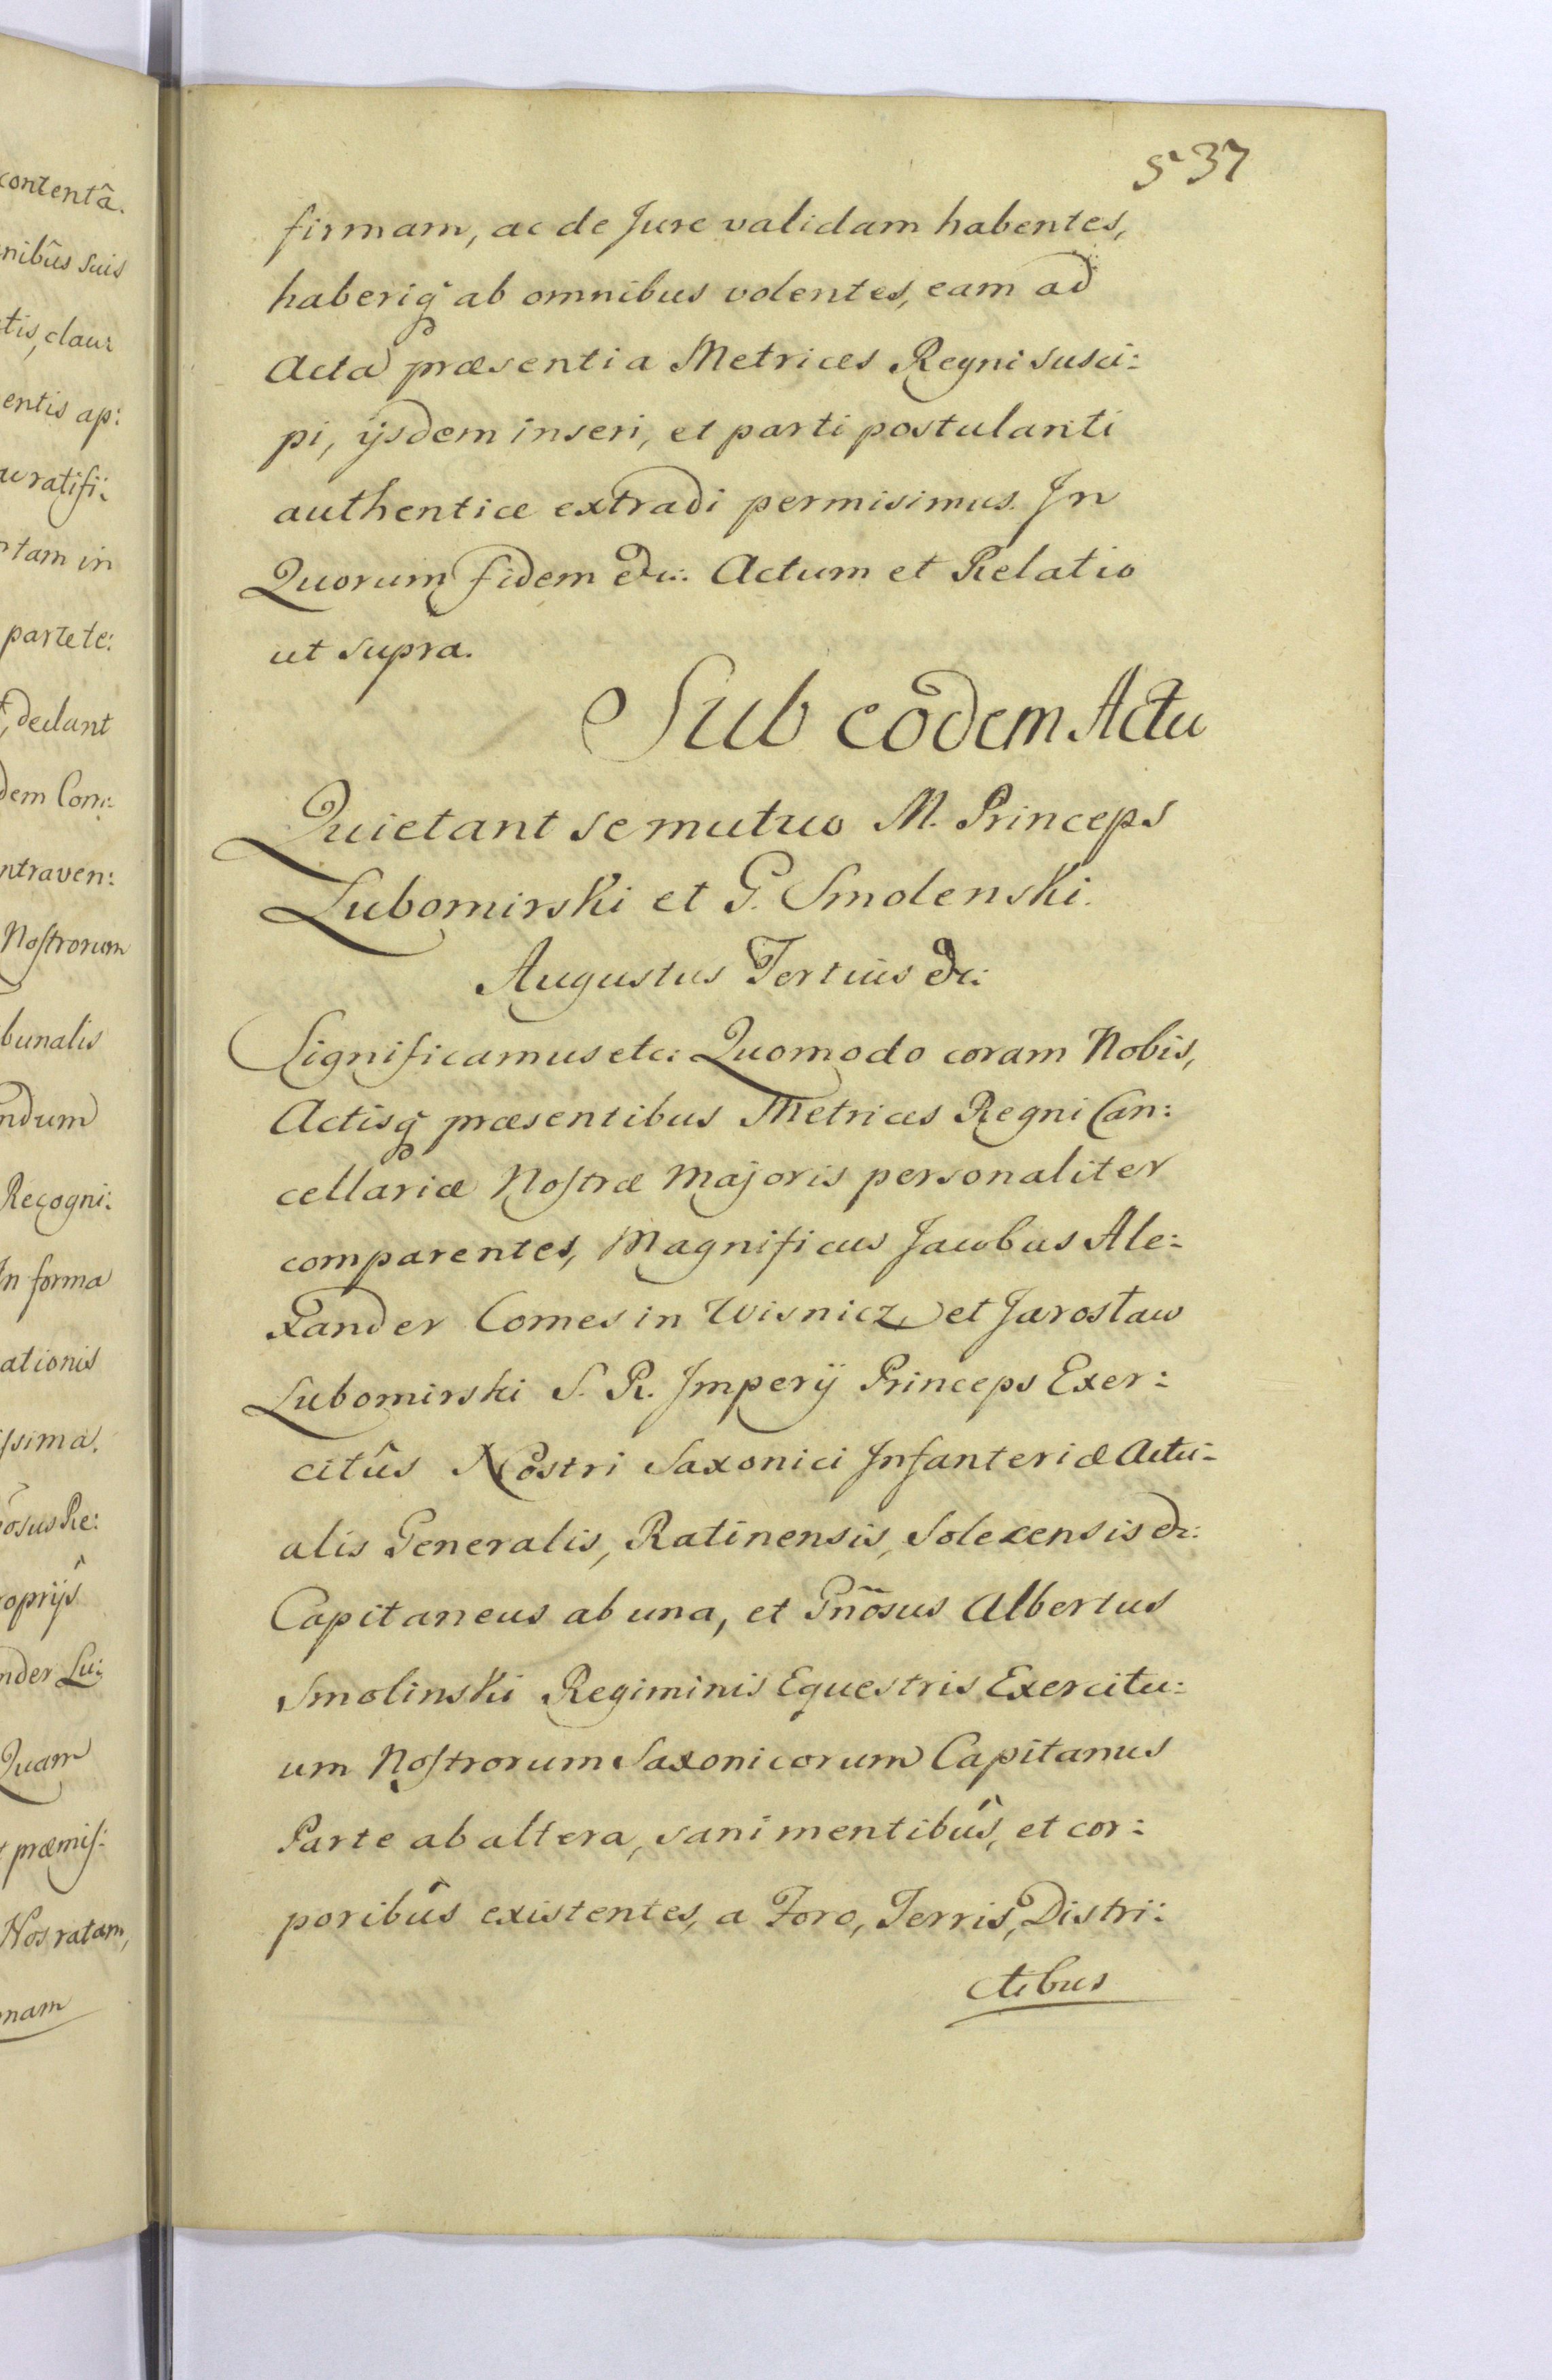 contentâ.
nibûs suis
tis, clau:
entis ap:
ratifi:
tam in
parte te:
declant
dem Com:
ntraven:
Nostrorum
bunalis
ndum
Recogni:
In forma
ationis
issima.
ôsus Re:
roprijs
nder Lu:
Quam
præmis:
Nos, ratam,
nam
537
firmam, ac de Jure validam habentes,
haberiq̃ ab omnibus volentes, eam ad
Acta præsentia Metrices Regni susci:
pi, ijsdem inseri, et parti postulanti
authentice extradi permisimus. In
Quorum fidem &c: Actum et Relatio
ut supra.
Sub eôdem Actu
Quietant se mutuo M. Princeps
Lubomirski et G. Smolenski.
Augustus Tertius &c:
Significamus etc: Quomodo coram Nobis,
Actisq̃ præsentibus Metrices Regni Can:
cellariæ Nostræ Majoris personaliter
comparentes, Magnificus Jacobus Ale:
xander Comes in Wisnicz et Jarosław
Lubomirski S. R. Imperij Princeps Exer:
citûs Nostri Saxonici Infanteriæ Actu:
alis Generalis, Ratinensis, Solecensis &c:
Capitaneus ab una, et Gnõsus Albertus
Smolinski Regiminis Equestris Exercitu:
um Nostrorum Saxonicorum Capitanus
Parte ab altera, sani mentibûs, et cor:
poribûs existentes, a Foro, Terris, Distri:
ctibus